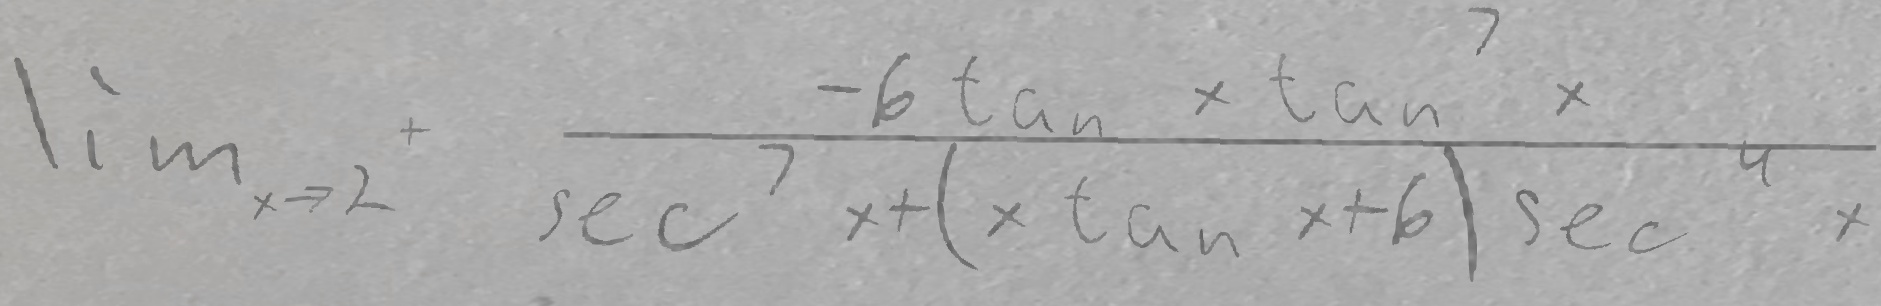 \lim_{x \to 2^+} \frac{-6 \tan x \tan^7 x}{\sec^7 x + (x \tan x + 6) \sec^4 x}